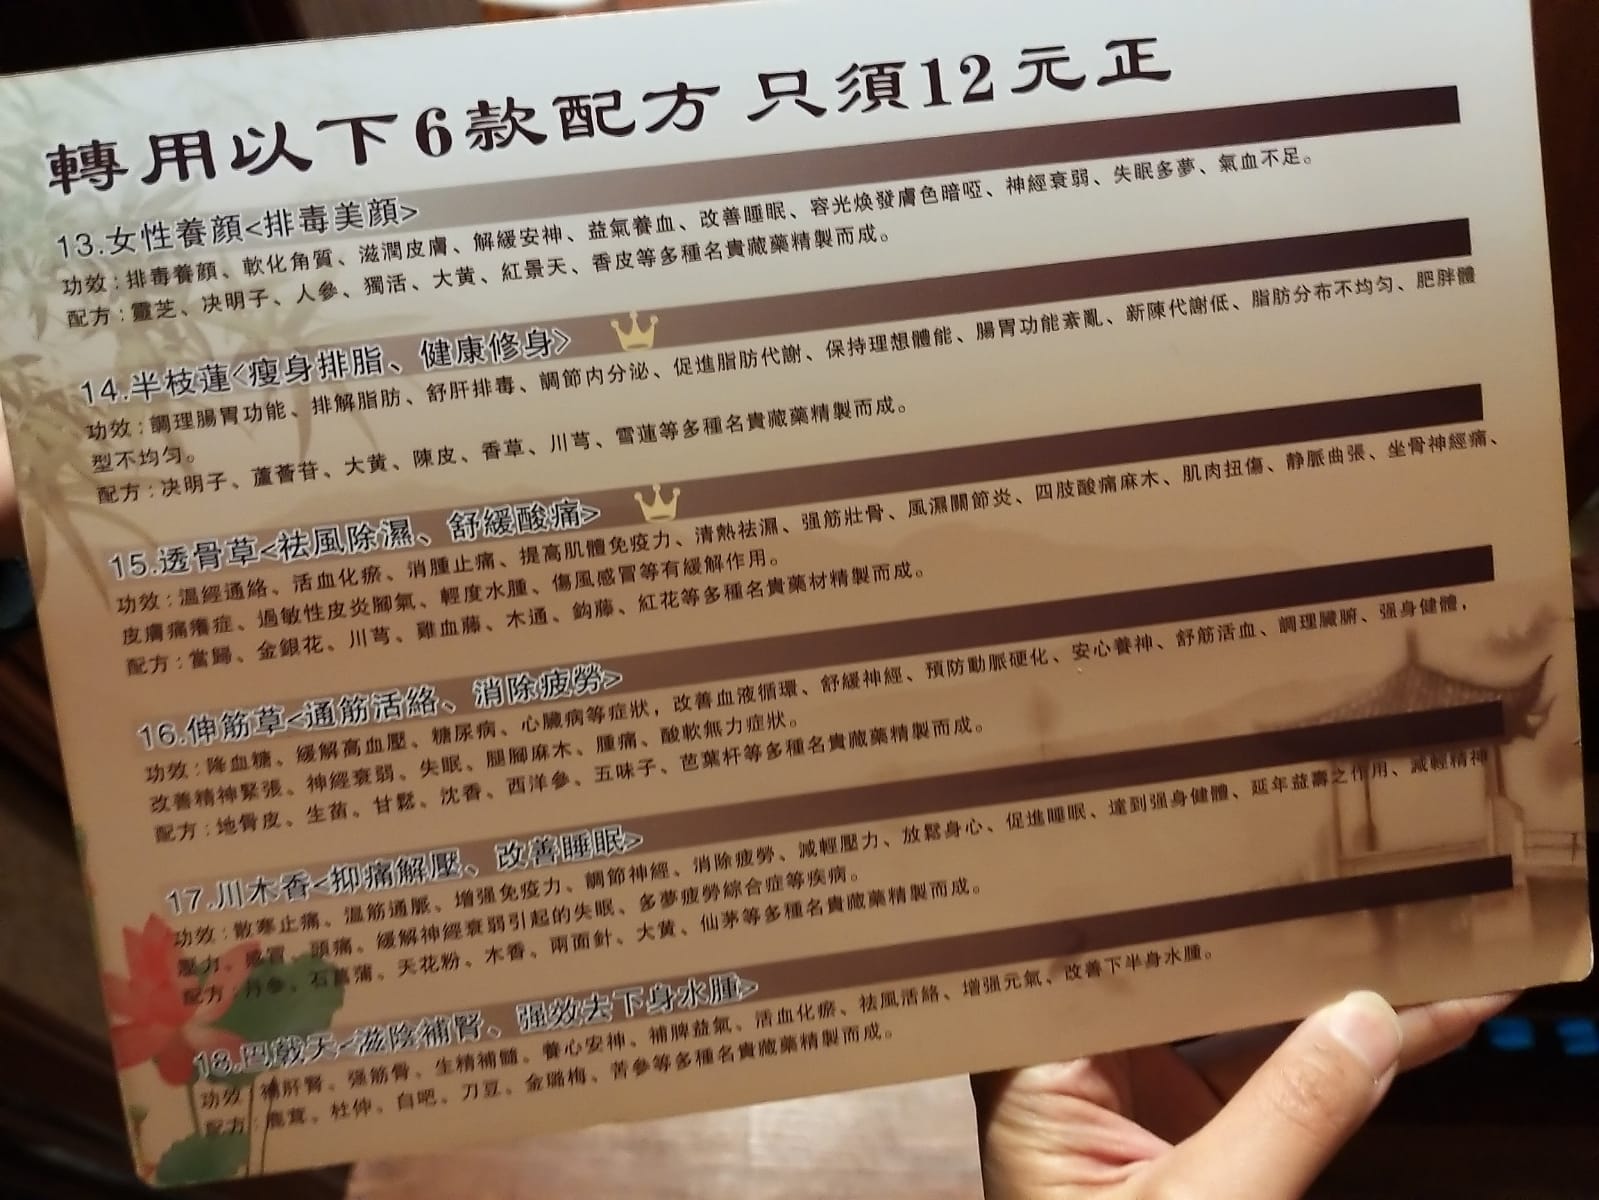 轉用以下6款配方 只須12元正
13.女性養顏<排毒美顏>
功效:排毒養顏、軟化角質、滋潤皮膚、解緩安神、益氣養血、改善睡眠、容光煥發膚色暗啞、神經衰弱、失眠多夢、氣血不足。
配方:靈芝、決明子、人參、獨活、大黃、紅景天、香皮等多種名貴藏藥精製而成。
14.半枝蓮<瘦身排脂、健康修身>
功效:調理腸胃功能、排解脂肪、舒肝排毒、調節內分泌、促進脂肪代謝、保持理想體能、腸胃功能紊亂、新陳代謝低、脂肪分布不均勻、肥胖體
型不均勻。
配方:決明子、蘆薈苷、大黃、陳皮、香草、川芎、雪蓮等多種名貴藏藥精製而成。
15.透骨草<祛風除濕、舒緩酸痛>
功效:溫經通絡、活血化瘀、消腫止痛、提高肌體免疫力、清熱祛濕、强筋壯骨、風濕關節炎、四肢酸痛麻木、肌肉扭傷、靜脈曲張、坐骨神經痛、
皮膚痛癢症、過敏性皮炎腳氣、輕度水腫、傷風感冒等有緩解作用。
配方:當歸、金銀花、川芎、雞血藤、木通、鈎藤、紅花等多種名貴藥材精製而成。
16.伸筋草<通筋活絡、消除疲勞>
功效:降血糖、緩解高血壓、糖尿病、心臟病等症狀，改善血液循環、舒緩神經、預防動脈硬化、安心養神、舒筋活血、調理臟腑、强身健體，
改善精神緊張、神經衰弱、失眠、腿腳麻木、腫痛、酸軟無力症狀。
配方:地骨皮、生苗、甘鬆、沈香、西洋參、五味子、芭葉杆等多種名貴藏藥精製而成。
17.川木香<抑痛解壓、改善睡眠>
功效:散寒止痛、溫筋通脈、增强免疫力、調節神經、消除疲勞、減輕壓力、放鬆身心、促進睡眠、達到强身健體、延年益壽之作用、減輕精神
壓力、感冒、頭痛、緩解神經衰弱引起的失眠、多夢疲勞綜合症等疾病。
配方:丹參、石菖蒲、天花粉、木香、兩面針、大黃、仙茅等多種名貴藏藥精製而成。
18.巴戟天<滋陰補腎、强效去下身水腫>
功效:補肝腎、强筋骨、生精補髓、養心安神、補脾益氣、活血化瘀、祛風活絡、增强元氣、改善下半身水腫。
配方:鹿茸、杜仲、自吧、刀豆、金璐梅、苦參等多種名貴藏藥精製而成。